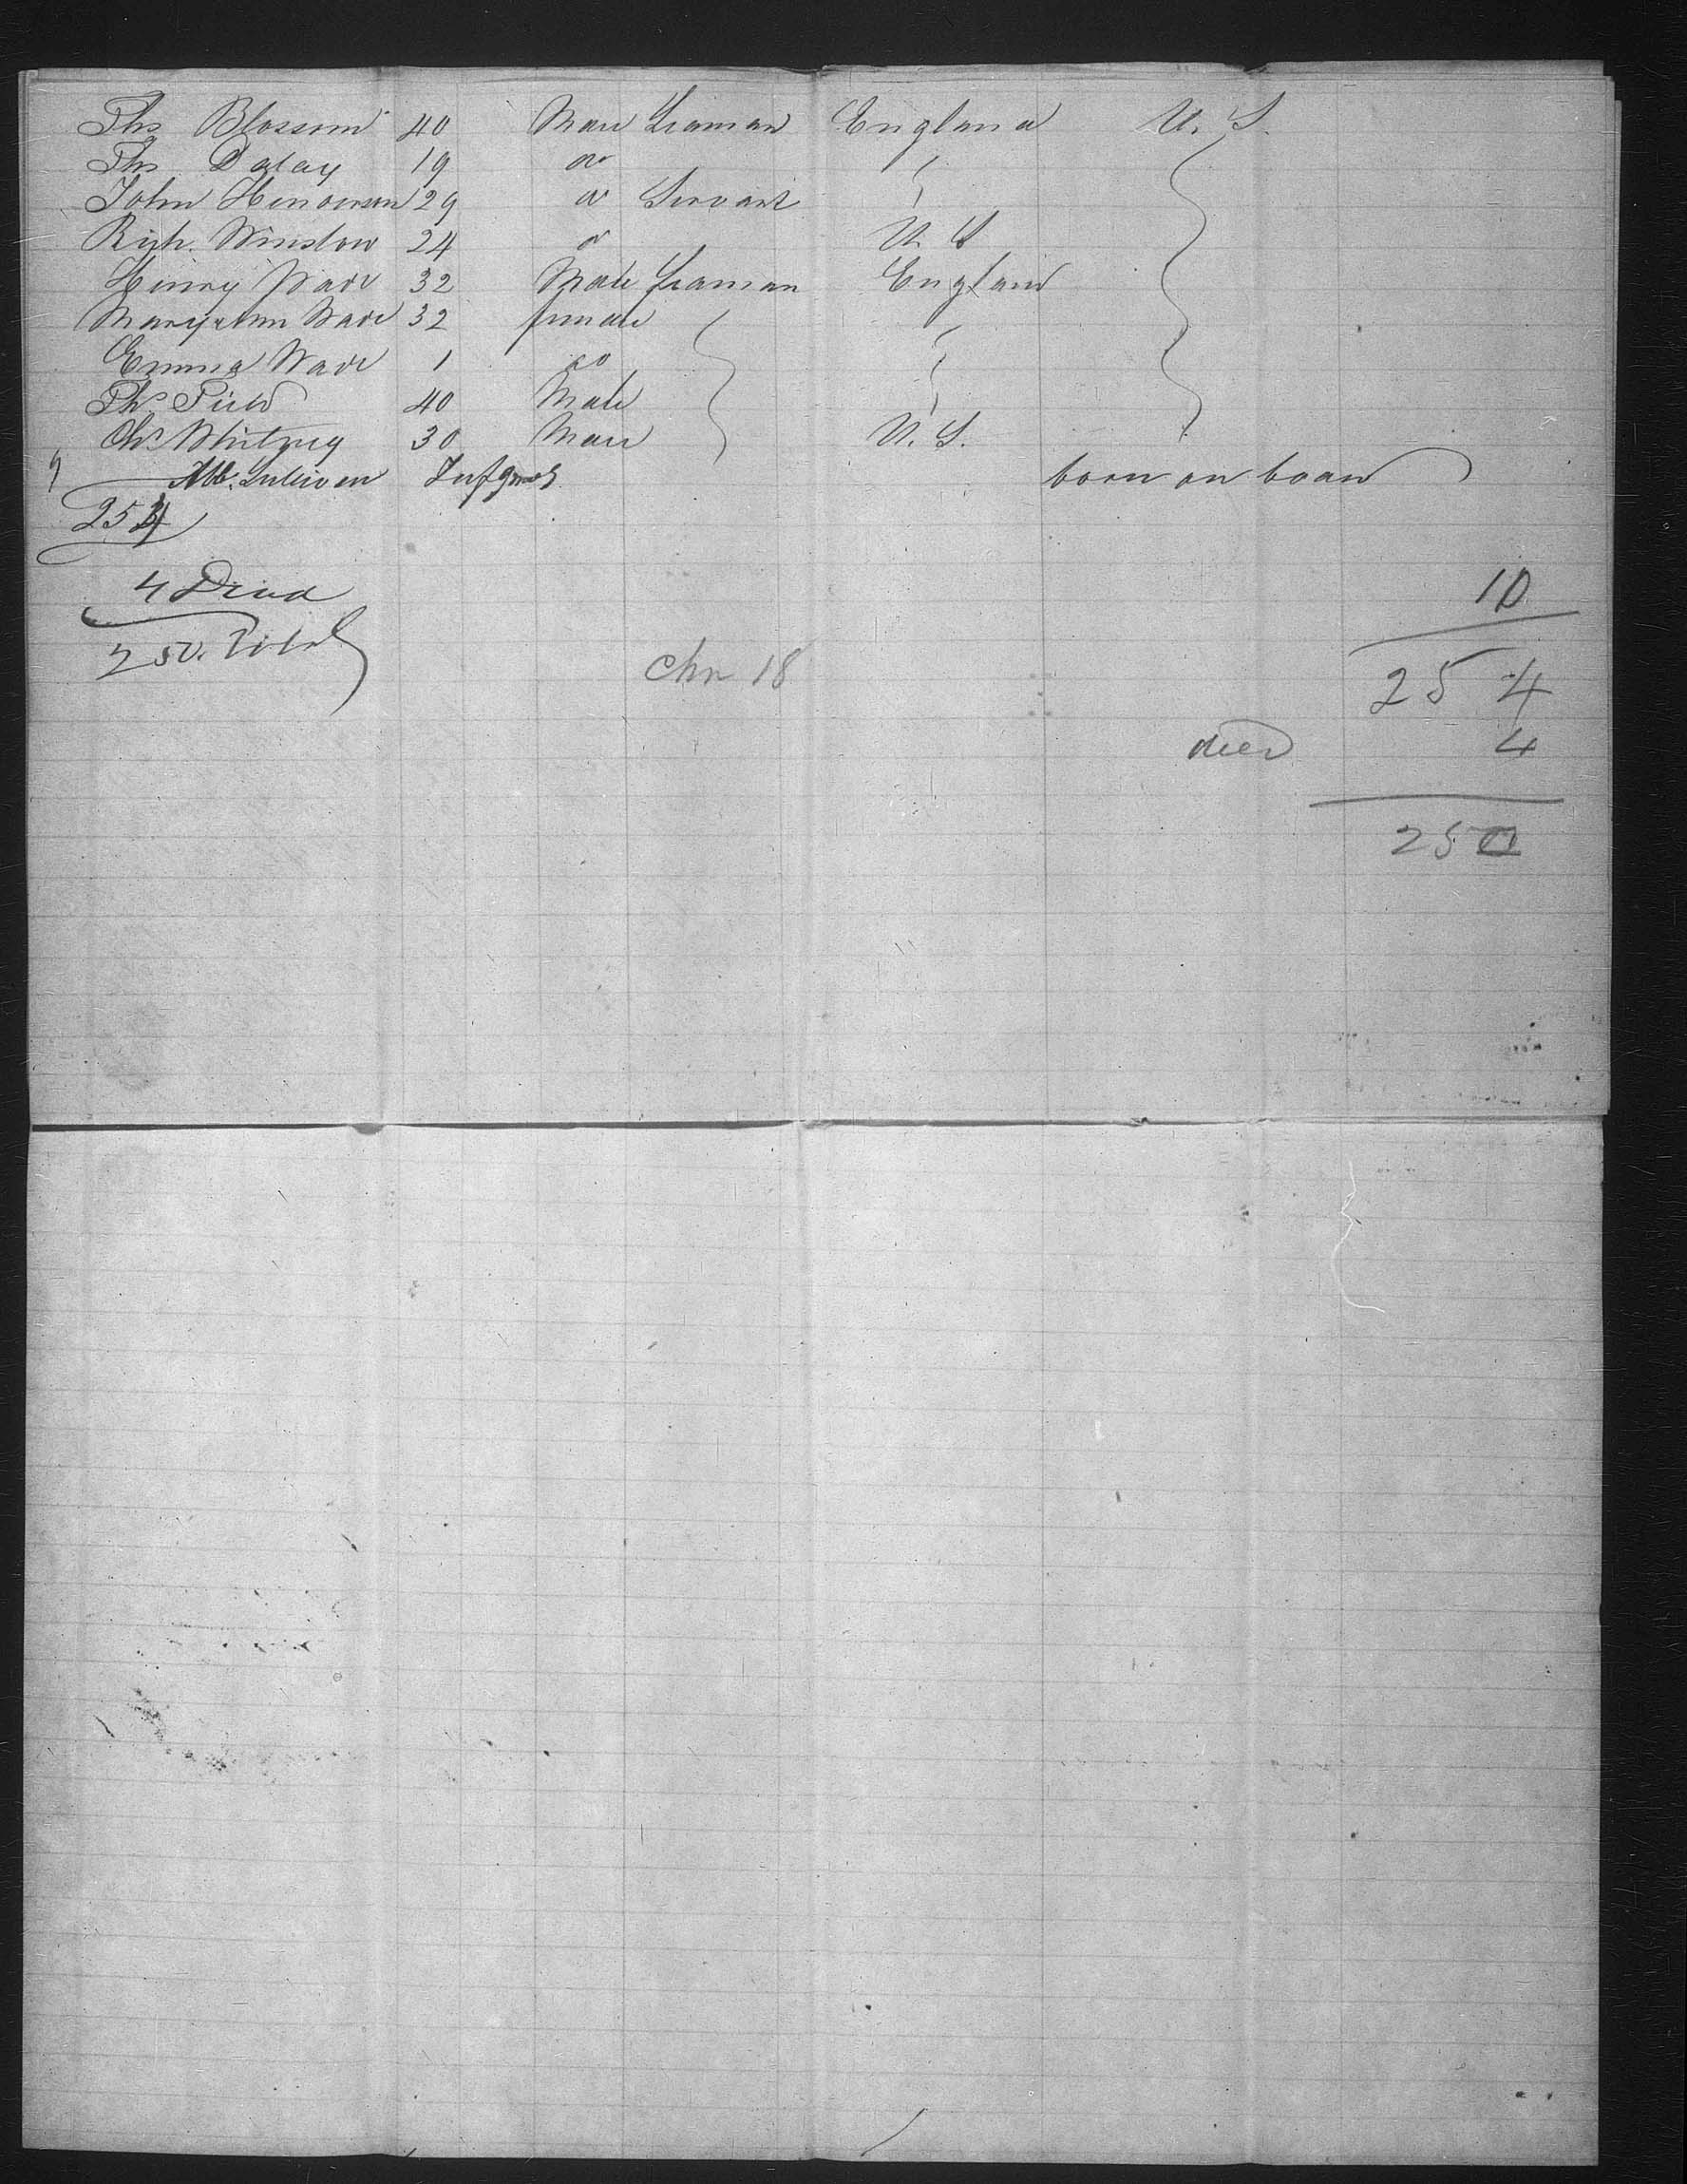 Ths Blossom 40 Male Seaman England U. S.
Ths Daley 19 do
John Henderson 29 do Servant
Rich. Winslow 24 do U S
Henry Wade 32 Male Seaman England
Maryann Wade 32 female
Emma Wade 1 do
Ths Field 40 Male
Chs Whitney 30 Male U. S.
Sulivan Inf born on board
254
4 Died 10
250. Total 254
Chn 18
died 4
250